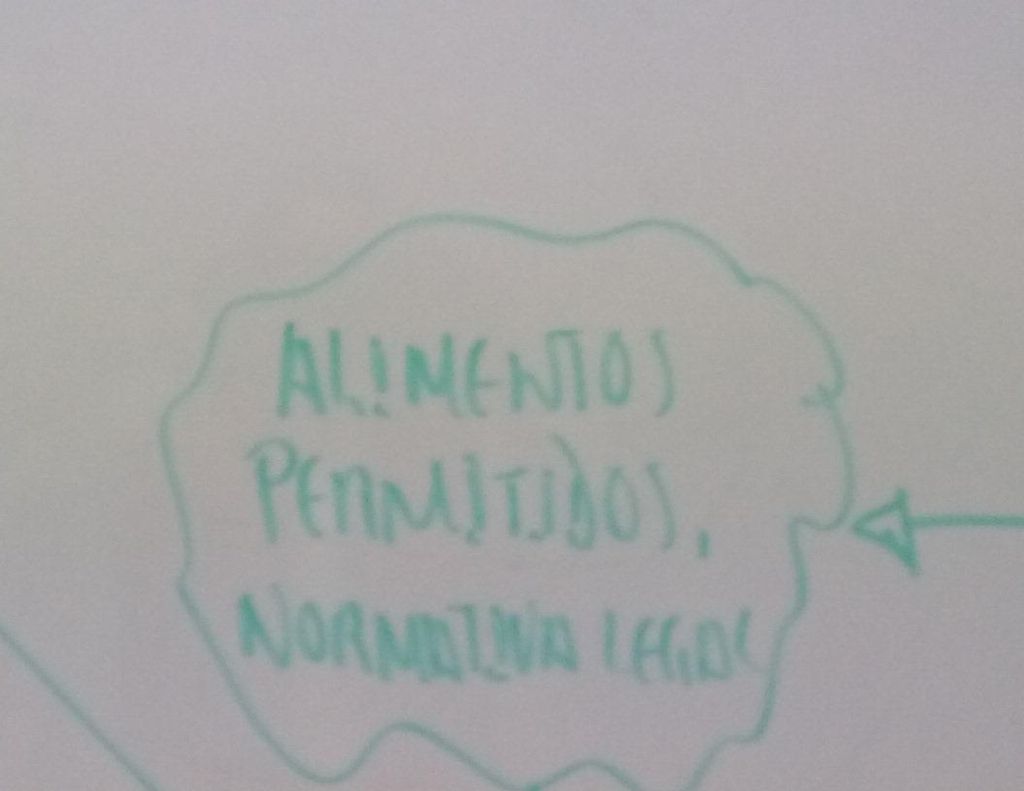 ALIMENTOS
PERMITIDOS,
NORMATIVA LEGAL